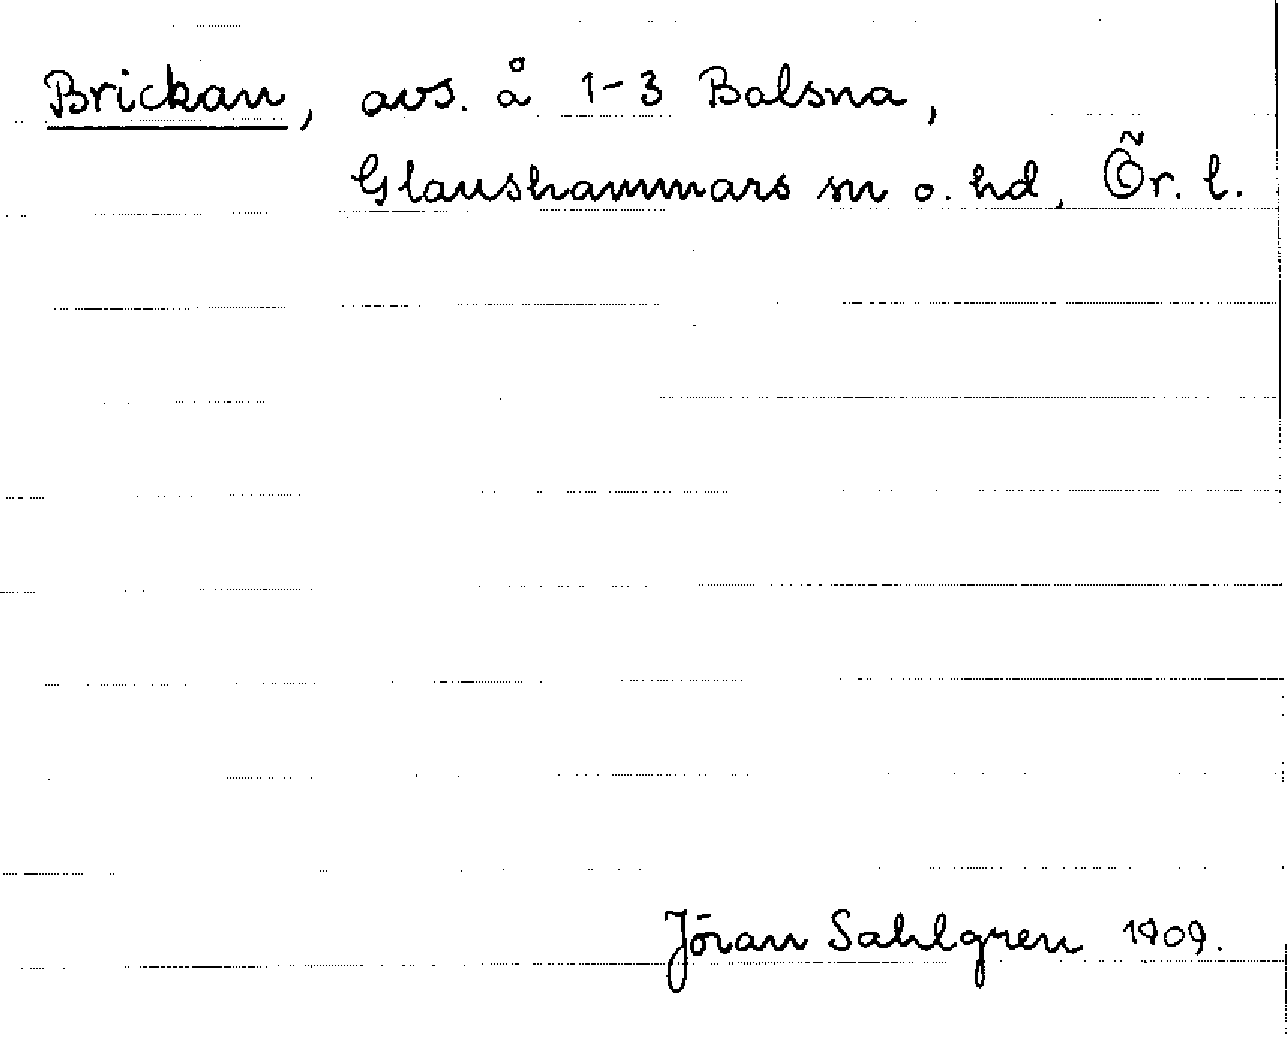 Brickan, avs. å 1-3 Balsna,
Glanshammars sn o. hd, Ör. l.
Jöran Sahlgren 1909.